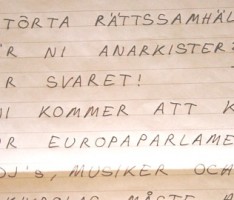 TÖRTA RÄTTSSAMHÄL
R NI ANARKISTER?
R SVARET!
NI KOMMER ATT
OR EUROPAPARLAME
DJ's, MUSIKER OCH
MÅSTE